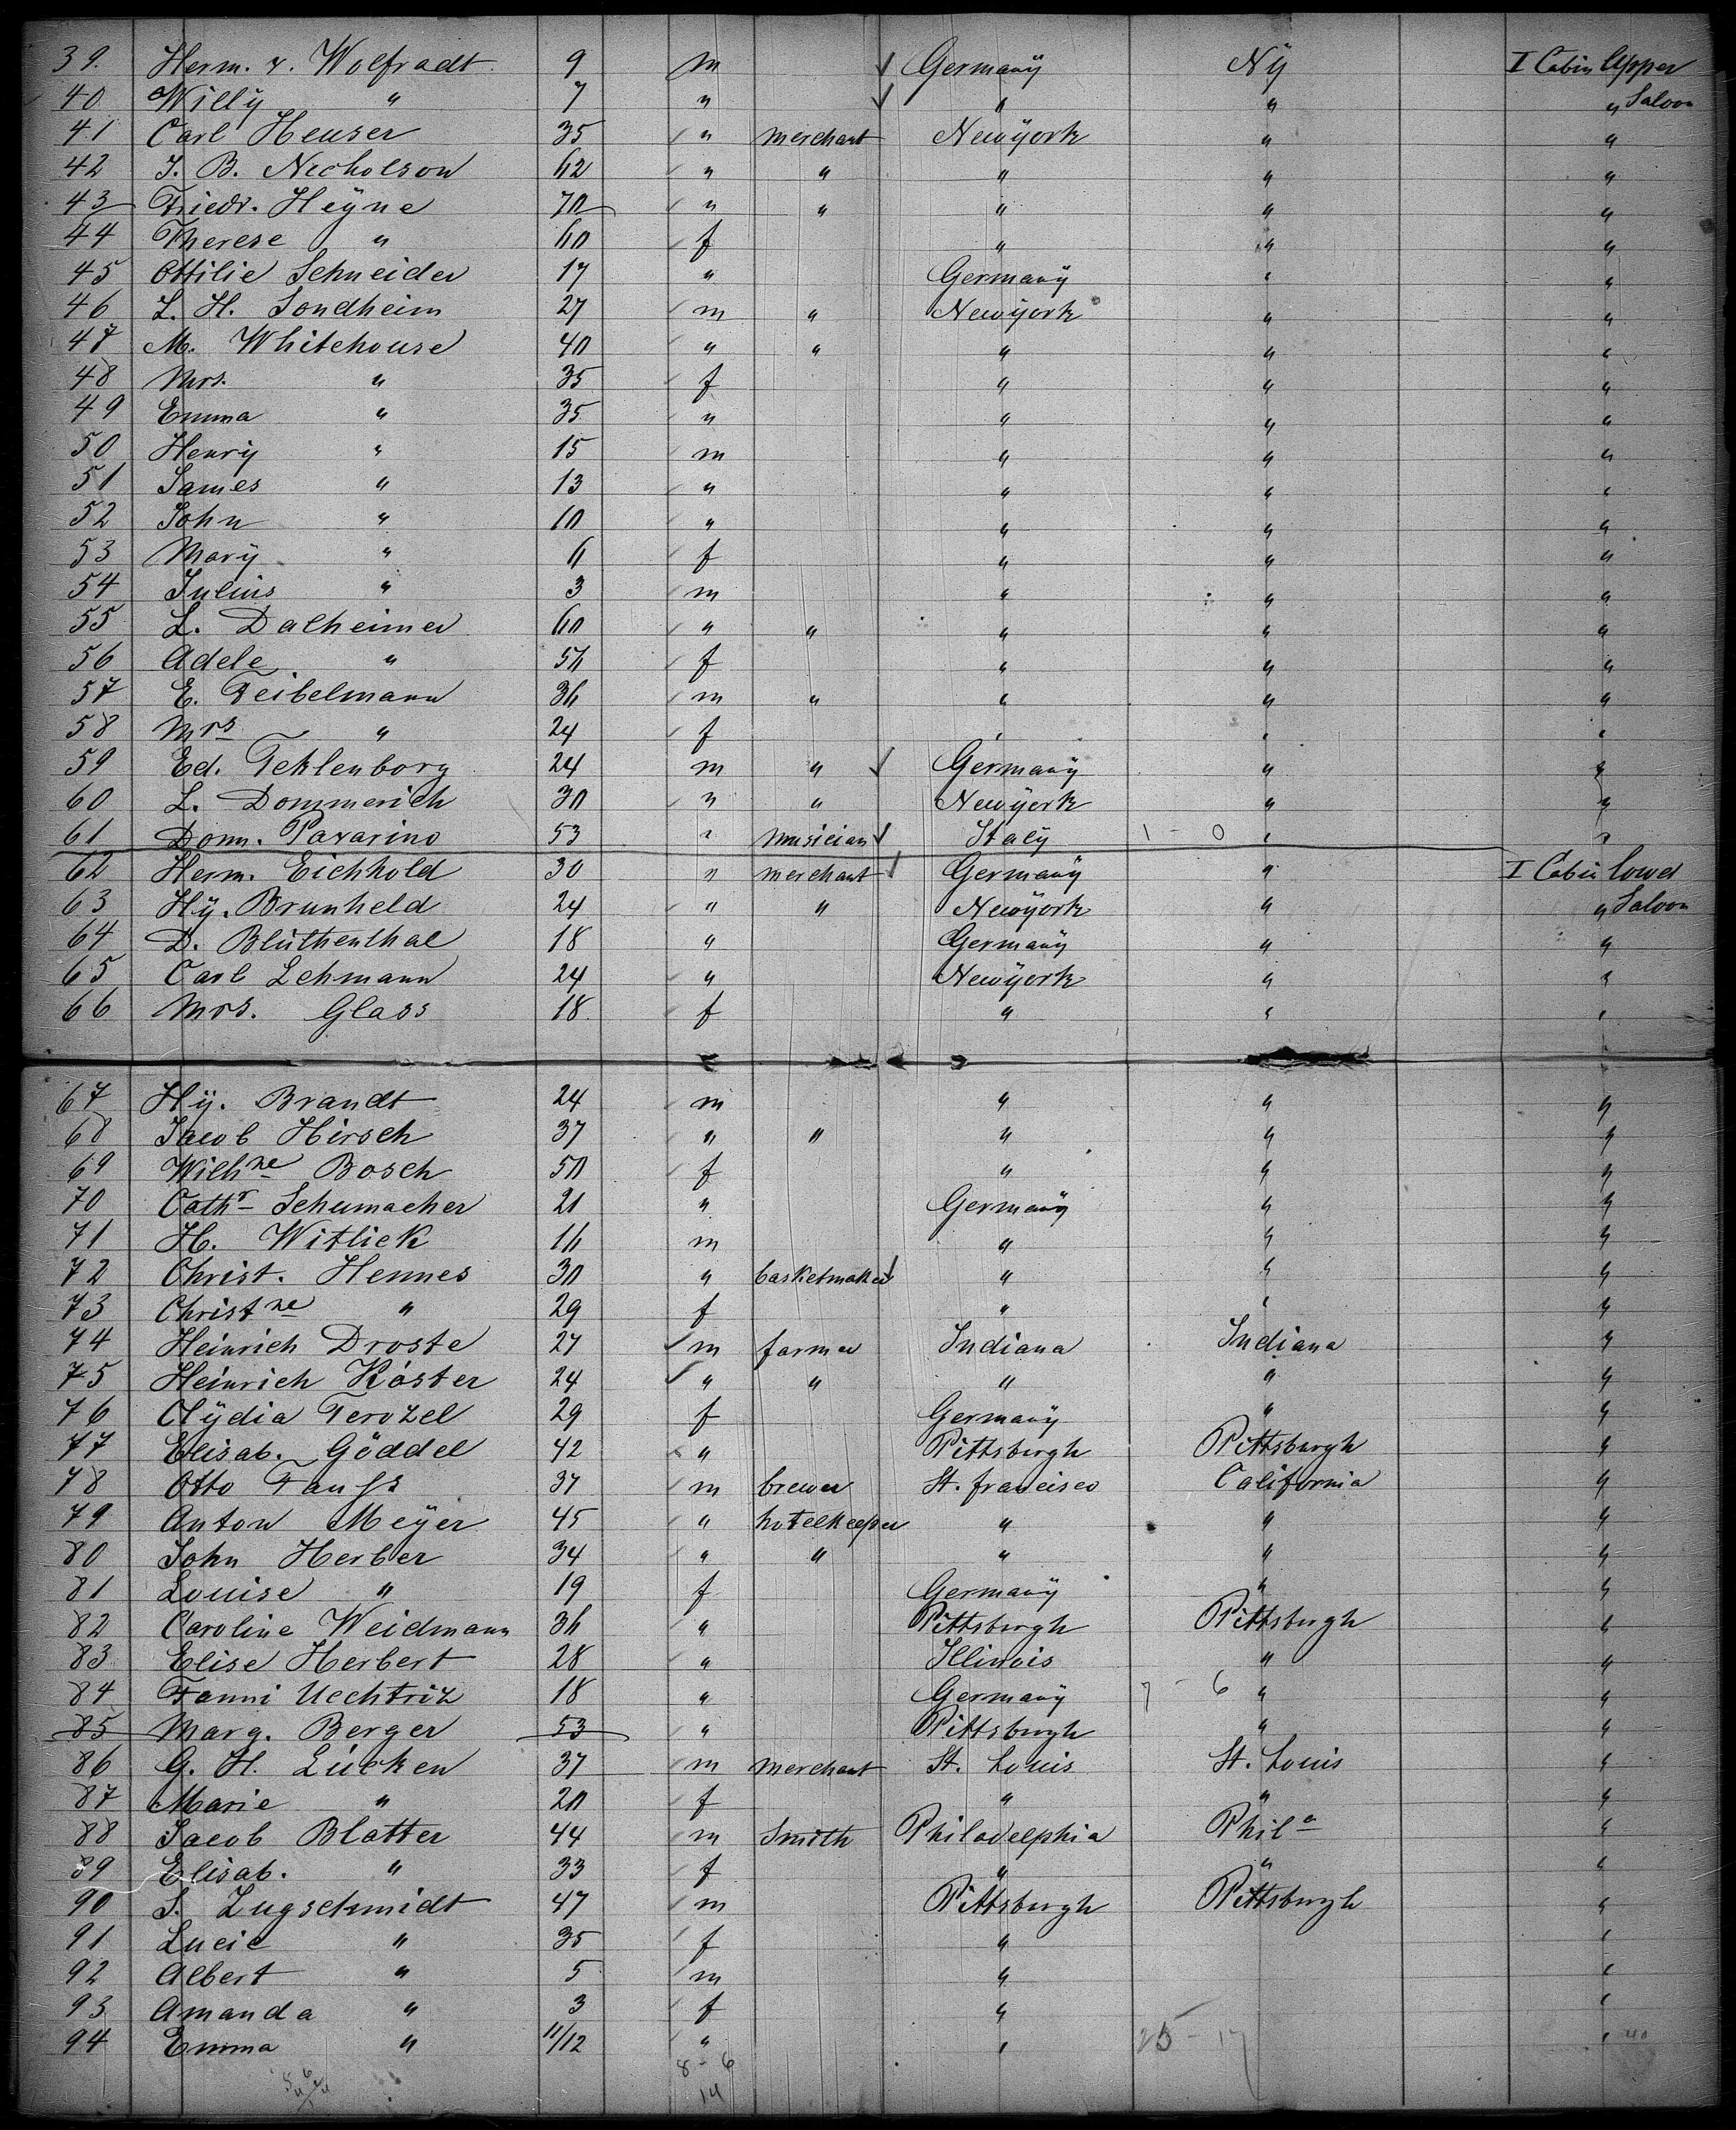 39. Herm. v. Wolfradt 9 m Germany Ny I Cabin Upper
40 Willy " 7 " " " " Saloon
41 Carl Heuser 35 " merchant Newyork " "
42 J. B. Necholson 62 " " " " "
43 Friedr. Heyne 70 " " " " "
44 Therese " 60 f " " "
45 Ottilie Schneider 17 " Germany " "
46 L. H. Sondheim 27 m " Newyork " "
47 M. Whitehouse 40 " " " " "
48 Mrs. " 35 f " " "
49 Emma " 35 " " " "
50 Henry " 15 m " " "
51 James " 13 " " " "
52 John " 10 " " " "
53 Mary " 6 f " " "
54 Julius " 3 m " " "
55 L. Dalheimer 60 " " " " "
56 Adele " 56 f " " "
57 E. Feibelmann 36 m " " " "
58 Mrs " 24 f " " "
59 Ed. Teklenborg 24 m " Germany " "
60 L. Dommerich 30 " " Newyork " "
61 Dom. Pavarino 53 " musician Italy 1 - 0 " "
62 Herm. Eichhold 30 " merchant Germany " I Cabin lower
63 Hy. Brunheld 24 " " Newyork " " Saloon
64 D. Blüthenthal 18 " Germany " "
65 Carl Lehmann 24 " Newyork " "
66 Mrs. Glass 18 f " " "
67 Hy. Brandt 24 m " " "
68 Jacob Hirsch 37 " " " " "
69 Wilhne Bosch 50 f " " "
70 Cathr Schumacher 21 " Germany " "
71 H. Witlick 16 m " " "
72 Christ. Hennes 30 " basketmaker " " "
73 Christne " 29 f " " "
74 Heinrich Droste 27 m farmer Indiana Indiana "
75 Heinrich Köster 24 " " " " "
76 Clydia Terozel 29 f Germany " "
77 Elisab. Göddel 42 " Pittsburgh Pittsburgh "
78 Otto Fauss 37 m brewer St. francisco California "
79 Anton Meyer 45 " hotelkeeper " " "
80 John Herber 34 " " " " "
81 Louise " 19 f Germany " "
82 Caroline Weidmann 36 " Pittsburgh Pittsburgh "
83 Elise Herbert 28 " Illinois " "
84 Fanni Uechtriz 18 " Germany 7 - 6 " "
85 Marg. Berger 53 " Pittsburgh " "
86 G. H. Lücken 37 m merchant St. Louis St. Louis "
87 Marie " 20 f " " "
88 Jacob Blatter 44 m Smith Philadelphia Phila "
89 Elisab. " 33 f " " "
90 S. Zugschmidt 47 m Pittsburgh Pittsburgh "
91 Lucie " 35 f " "
92 Albert " 5 m " "
93 Amanda " 3 f " "
94 Emma " 11/12 " " 25 - 17 " 40
8 - 6
14